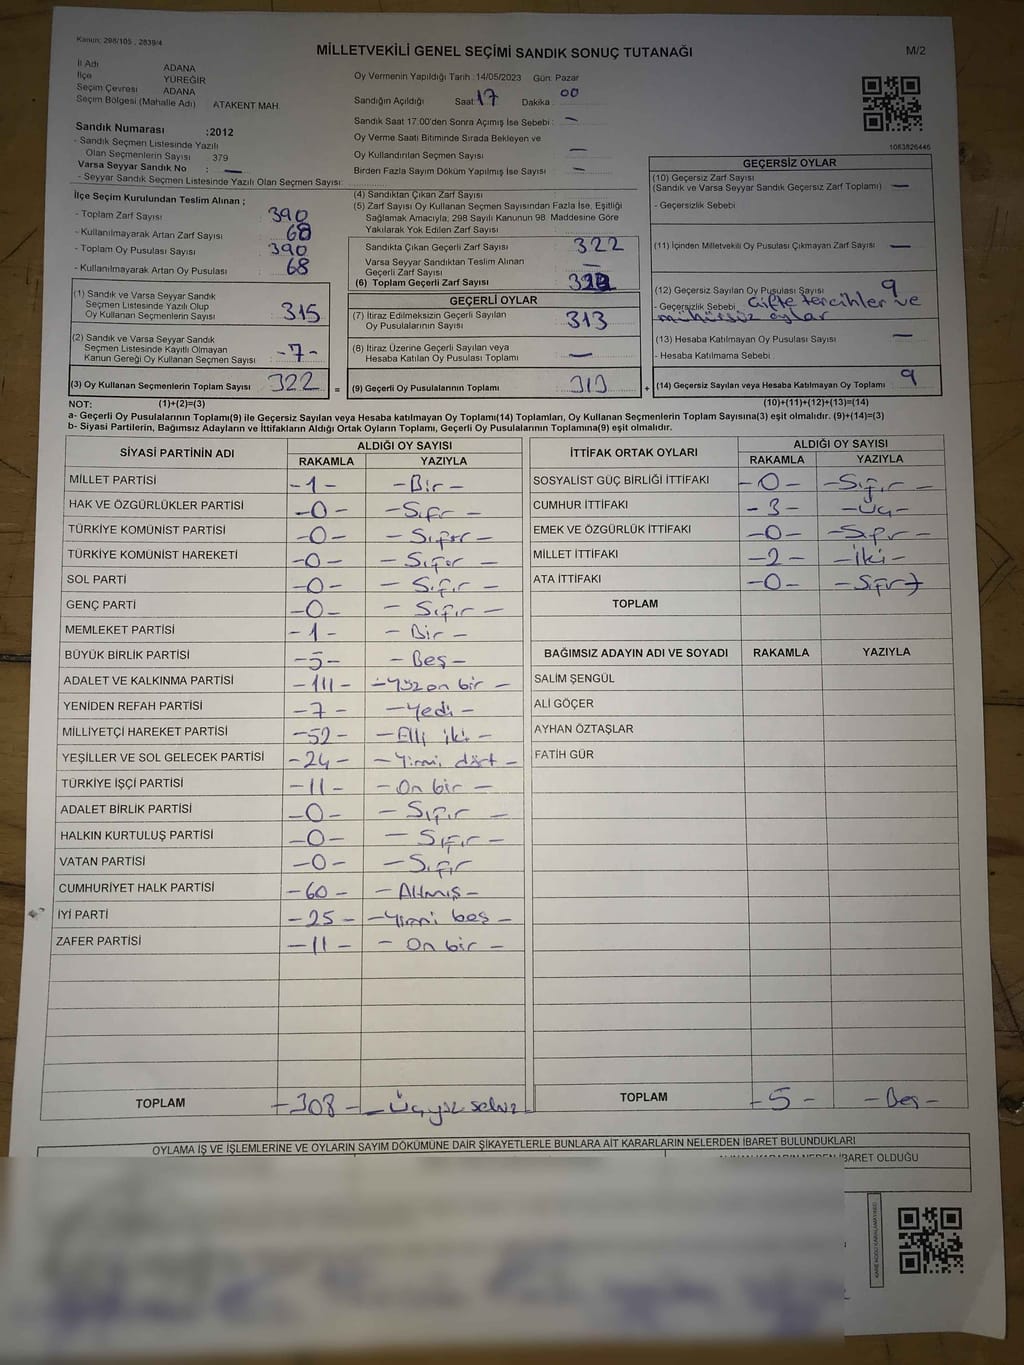 Kanun: 298/105 , 2839/4
MİLLETVEKİLİ GENEL SEÇİMİ SANDIK SONUÇ TUTANAĞI
M/2
İl Adı ADANA
İlçe YÜREĞİR
Seçim Çevresi ADANA
Seçim Bölgesi (Mahalle Adı) ATAKENT MAH.
Sandık Numarası :2012
- Sandık Seçmen Listesinde Yazılı
Olan Seçmenlerin Sayısı 379
Varsa Seyyar Sandık No : —
- Seyyar Sandık Seçmen Listesinde Yazılı Olan Seçmen Sayısı:
Oy Vermenin Yapıldığı Tarih : 14/05/2023 Gün: Pazar
Sandığın Açıldığı Saat 17 Dakika : 00
Sandık Saat 17:00'den Sonra Açılmış İse Sebebi : —
Oy Verme Saati Bitiminde Sırada Bekleyen ve
Oy Kullandırılan Seçmen Sayısı —
Birden Fazla Sayım Döküm Yapılmış İse Sayısı —
1083826446
İlçe Seçim Kurulundan Teslim Alınan ;
- Toplam Zarf Sayısı : 390
- Kullanılmayarak Artan Zarf Sayısı : 68
- Toplam Oy Pusulası Sayısı : 390
- Kullanılmayarak Artan Oy Pusulası : 68
(1) Sandık ve Varsa Seyyar Sandık
Seçmen Listesinde Yazılı Olup
Oy Kullanan Seçmenlerin Sayısı 315
(2) Sandık ve Varsa Seyyar Sandık
Seçmen Listesinde Kayıtlı Olmayan
Kanun Gereği Oy Kullanan Seçmen Sayısı -7-
(3) Oy Kullanan Seçmenlerin Toplam Sayısı 322 =
(4) Sandıktan Çıkan Zarf Sayısı
(5) Zarf Sayısı Oy Kullanan Seçmen Sayısından Fazla İse, Eşitliği
Sağlamak Amacıyla; 298 Sayılı Kanunun 98. Maddesine Göre
Yakılarak Yok Edilen Zarf Sayısı
Sandıkta Çıkan Geçerli Zarf Sayısı 322
Varsa Seyyar Sandıktan Teslim Alınan
Geçerli Zarf Sayısı —
(6) Toplam Geçerli Zarf Sayısı
GEÇERLİ OYLAR
(7) İtiraz Edilmeksizin Geçerli Sayılan
Oy Pusulalarının Sayısı 313
(8) İtiraz Üzerine Geçerli Sayılan veya
Hesaba Katılan Oy Pusulası Toplamı —
(9) Geçerli Oy Pusulalarının Toplamı 313 +
GEÇERSİZ OYLAR
(10) Geçersiz Zarf Sayısı
(Sandık ve Varsa Seyyar Sandık Geçersiz Zarf Toplamı) —
- Geçersizlik Sebebi
(11) İçinden Milletvekili Oy Pusulası Çıkmayan Zarf Sayısı —
(12) Geçersiz Sayılan Oy Pusulası Sayısı 9
- Geçersizlik Sebebi Çifte tercihler ve
mühürsüz oylar
(13) Hesaba Katılmayan Oy Pusulası Sayısı —
- Hesaba Katılmama Sebebi
(14) Geçersiz Sayılan veya Hesaba Katılmayan Oy Toplamı 9
NOT: (1)+(2)=(3) (10)+(11)+(12)+(13)=(14)
a- Geçerli Oy Pusulalarının Toplamı(9) ile Geçersiz Sayılan veya Hesaba katılmayan Oy Toplamı(14) Toplamları, Oy Kullanan Seçmenlerin Toplam Sayısına(3) eşit olmalıdır. (9)+(14)=(3)
b- Siyasi Partilerin, Bağımsız Adayların ve İttifakların Aldığı Ortak Oyların Toplamı, Geçerli Oy Pusulalarının Toplamına(9) eşit olmalıdır.
SİYASİ PARTİNİN ADI ALDIĞI OY SAYISI
RAKAMLA YAZIYLA
MİLLET PARTİSİ -1- -Bir-
HAK VE ÖZGÜRLÜKLER PARTİSİ -0- -Sıfır-
TÜRKİYE KOMÜNİST PARTİSİ -0- -Sıfır-
TÜRKİYE KOMÜNİST HAREKETİ -0- -Sıfır-
SOL PARTİ -0- -Sıfır-
GENÇ PARTİ -0- -Sıfır-
MEMLEKET PARTİSİ -1- -Bir-
BÜYÜK BİRLİK PARTİSİ -5- -Beş-
ADALET VE KALKINMA PARTİSİ -111- -Yüz on bir-
YENİDEN REFAH PARTİSİ -7- -Yedi-
MİLLİYETÇİ HAREKET PARTİSİ -52- -Elli iki-
YEŞİLLER VE SOL GELECEK PARTİSİ -24- -Yirmi dört-
TÜRKİYE İŞÇİ PARTİSİ -11- -On bir-
ADALET BİRLİK PARTİSİ -0- -Sıfır-
HALKIN KURTULUŞ PARTİSİ -0- -Sıfır-
VATAN PARTİSİ -0- -Sıfır
CUMHURİYET HALK PARTİSİ -60- -Altmış-
İYİ PARTİ -25- -Yirmi beş-
ZAFER PARTİSİ -11- -On bir-
TOPLAM -308- -Üçyüz sekiz-
İTTİFAK ORTAK OYLARI ALDIĞI OY SAYISI
RAKAMLA YAZIYLA
SOSYALİST GÜÇ BİRLİĞİ İTTİFAKI -0- -Sıfır-
CUMHUR İTTİFAKI -3- -Üç-
EMEK VE ÖZGÜRLÜK İTTİFAKI -0- -Sıfır-
MİLLET İTTİFAKI -2- -İki-
ATA İTTİFAKI -0- -Sıfır-
TOPLAM
BAĞIMSIZ ADAYIN ADI VE SOYADI RAKAMLA YAZIYLA
SALİM ŞENGÜL
ALİ GÖÇER
AYHAN ÖZTAŞLAR
FATİH GÜR
TOPLAM -5- -Beş-
OYLAMA İŞ VE İŞLEMLERİNE VE OYLARIN SAYIM DÖKÜMÜNE DAİR ŞİKAYETLERLE BUNLARA AİT KARARLARIN NELERDEN İBARET BULUNDUKLARI
İBARET OLDUĞU
KARE KODU KARALAMAYINIZ